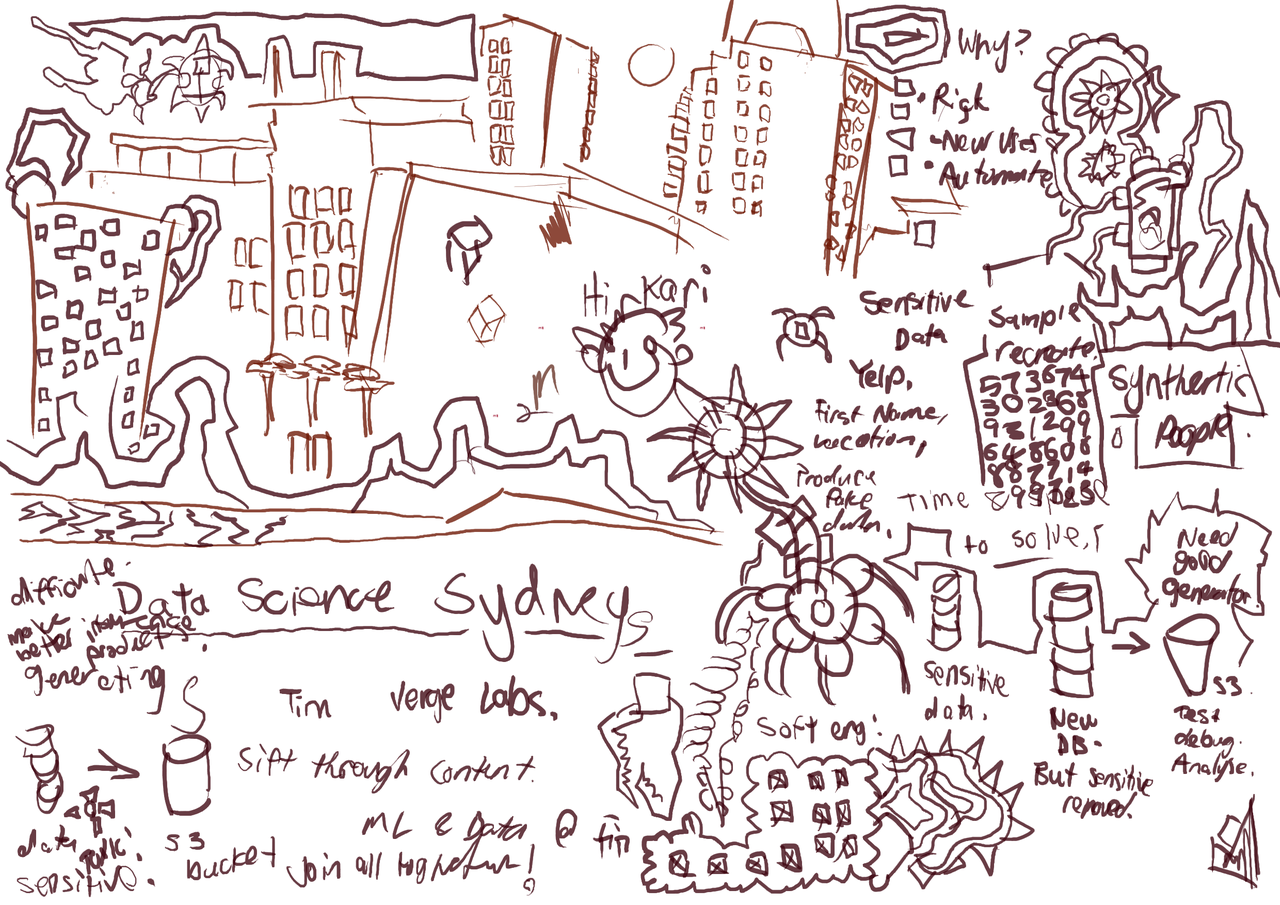 Why?
• Risk
• New Uses
• Automate
Hi Kari
Sensitive
Data
Yelp.
First Name,
Location,
Produce
Fake
data.
Sample
recreate.
573674
302368
931299
648608
887714
Time
to solve,
Synthertic
People
Need
good
generator
sensitive
data.
New
DB.
But sensitive
removed.
S3
Test
debug.
Analyse.
difficulte.
make
better
products.
generating
Data Science Sydney
Tim Verge Labs.
Sift through content.
ML & Data @ fin
Join all together!
data
sensitive.
S3
bucket
Soft eng: